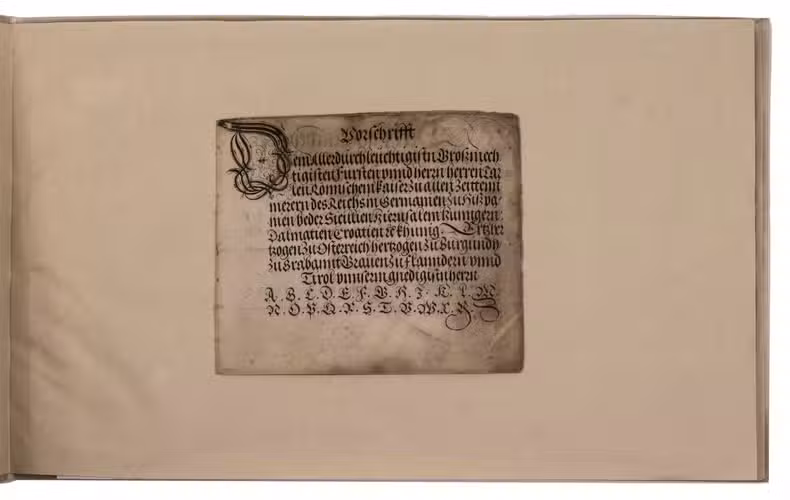 Vorschrifft
Dem Allerdurchleuchtigistn Großmech
tigisten Fursten vnnd herrn herren Car
len Römischem Kaiser zu allen Zeitten
merern des Reichs in Germanien zu Hißpa-
nien beder Sicilien Hierusalem Hungern
Dalmatien Croatien &c khunig Ertzher
tzogen zu Osterreich hertzogen zu Burgundy
zu Brabannt Grauen zu Flanndern vnnd
Tirol vnnserm gnedigistn hern
A. B. C. D. E. F. G. H. I. K. L. M
N. O. P. Q. R. S. T. V. W. X. Z.